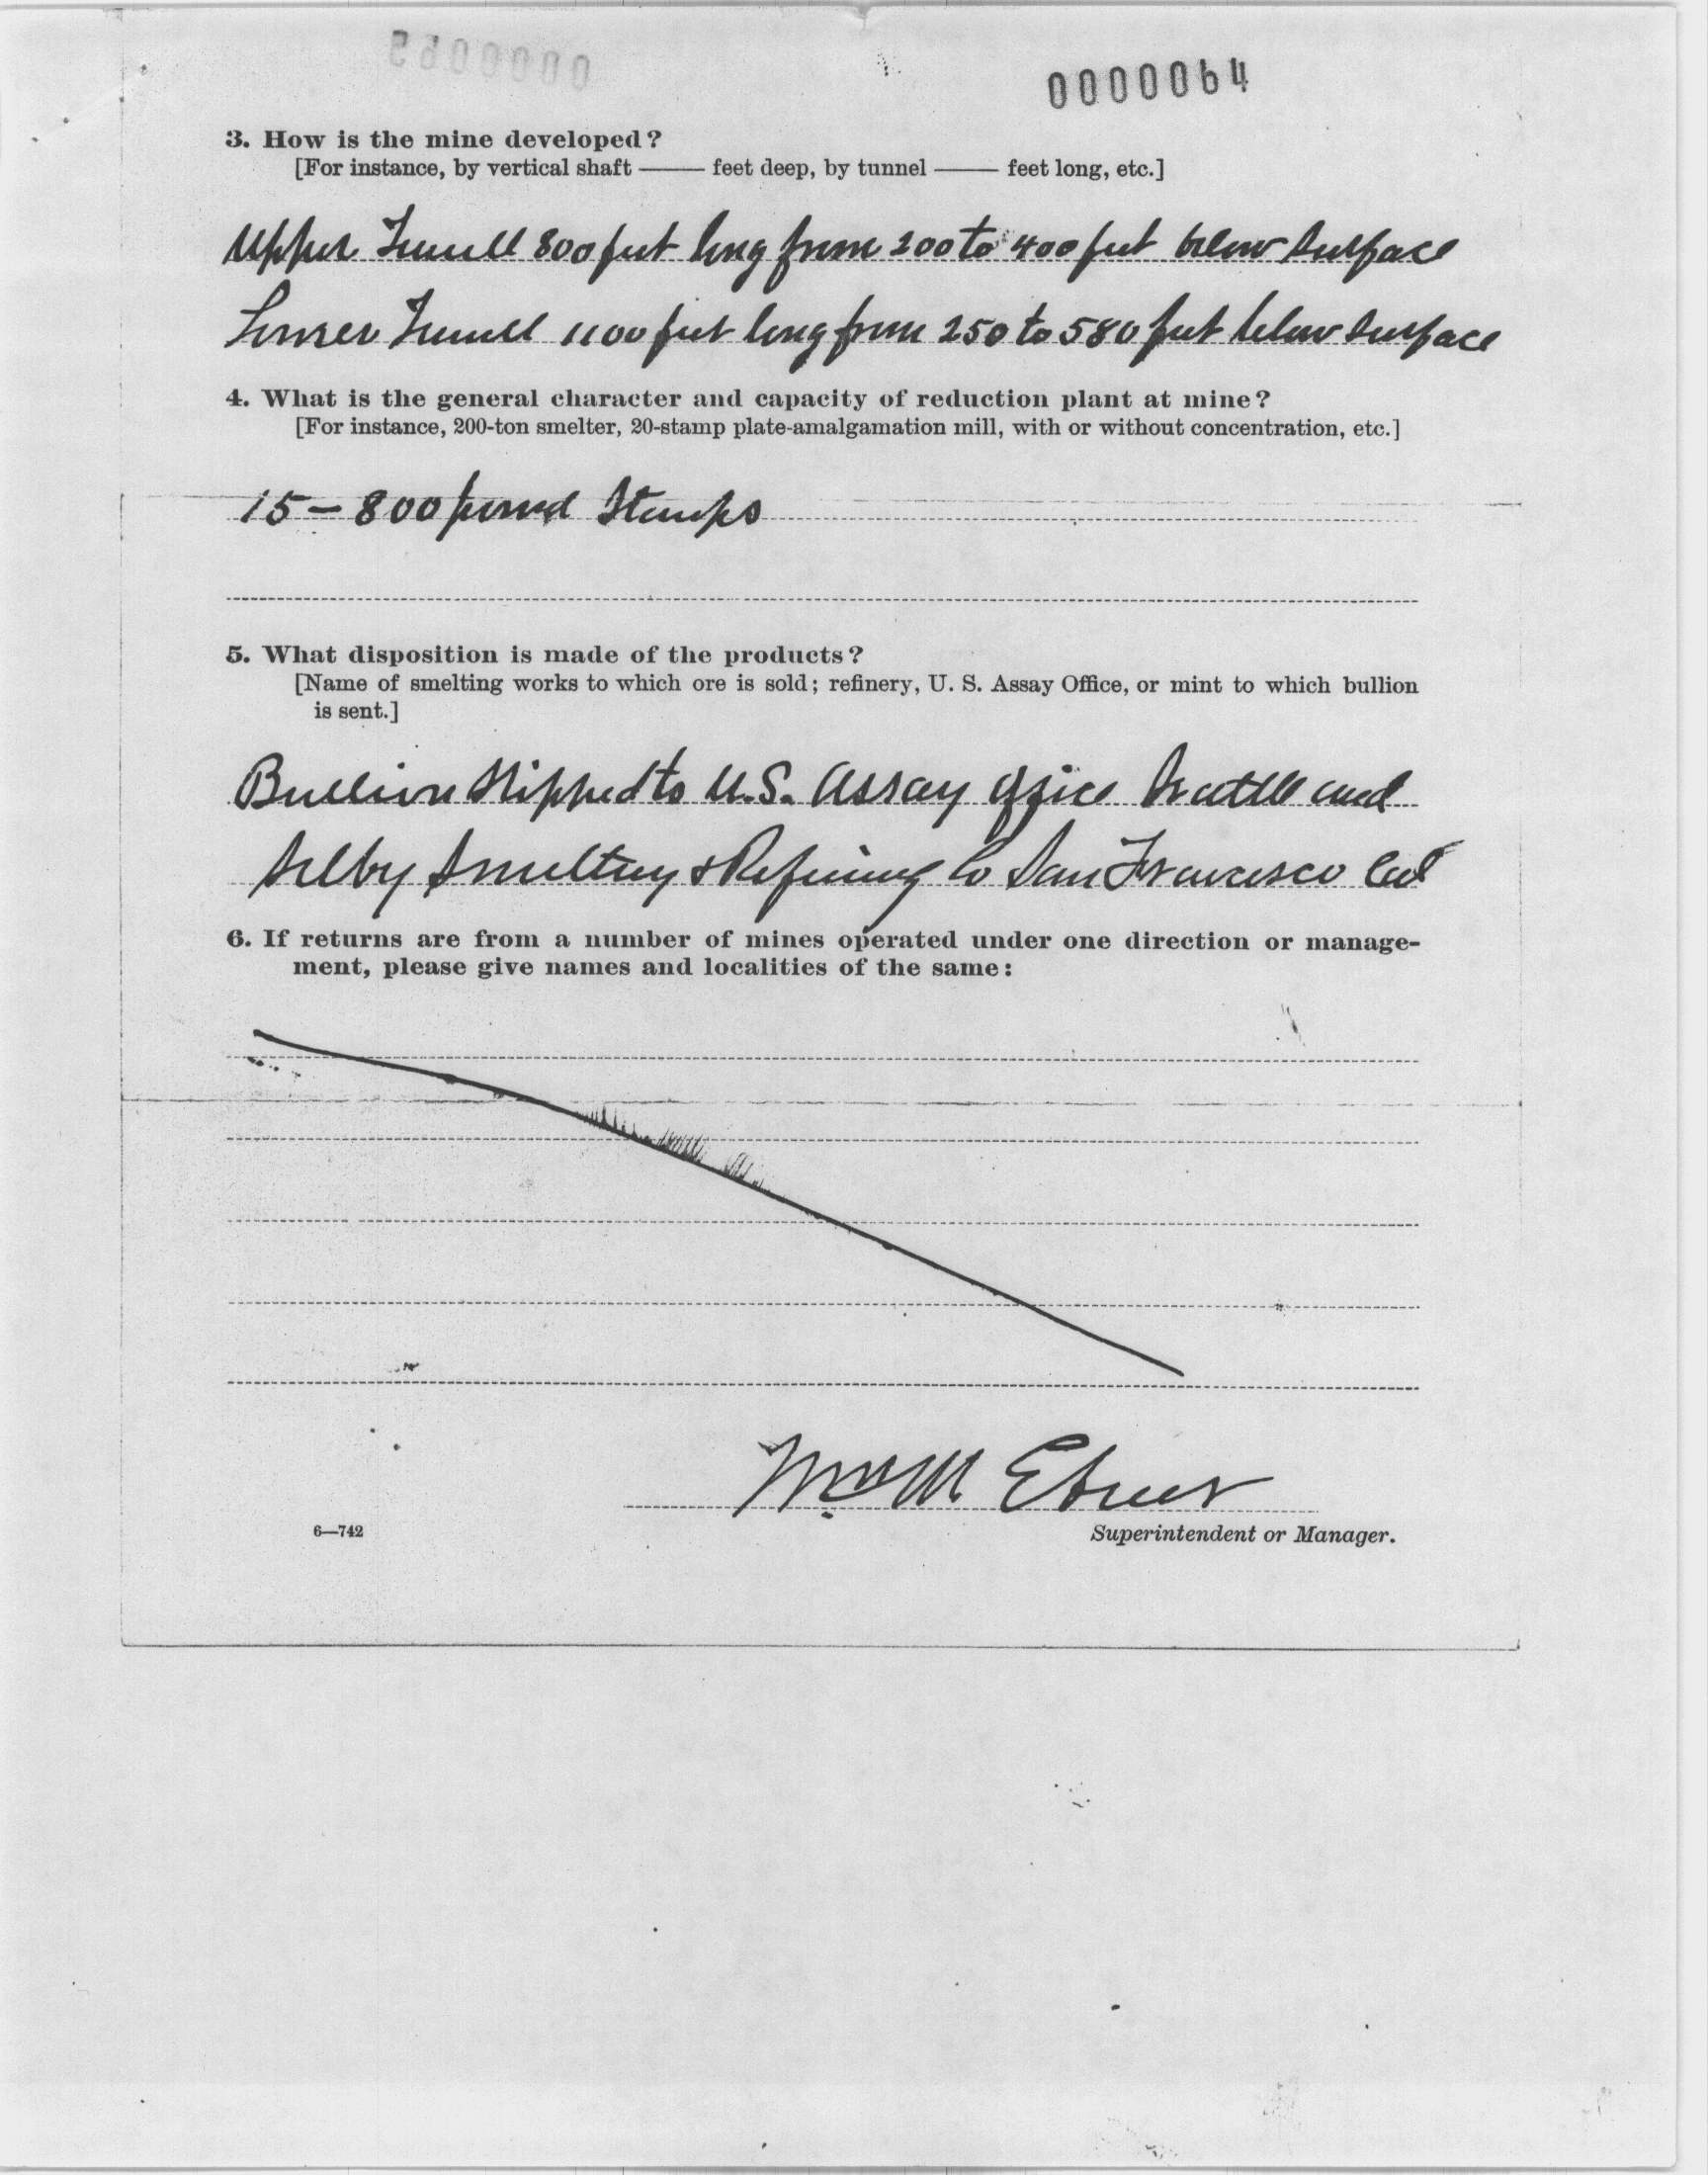 0000064
3. How is the mine developed?
[For instance, by vertical shaft —— feet deep, by tunnel —— feet long, etc.]
Upper Tunnell 800 feet long from 200 to 400 feet below surface
Lower Tunnell 1100 feet long from 250 to 580 feet below surface
4. What is the general character and capacity of reduction plant at mine?
[For instance, 200-ton smelter, 20-stamp plate-amalgamation mill, with or without concentration, etc.]
15 – 800 pound Stamps
5. What disposition is made of the products?
[Name of smelting works to which ore is sold; refinery, U. S. Assay Office, or mint to which bullion
is sent.]
Bullion Shipped to U.S. Assay office Seattle and
Selby Smelting & Refining Co San Francisco Cal
6. If returns are from a number of mines operated under one direction or manage-
ment, please give names and localities of the same:
Wm M Ebner
6—742
Superintendent or Manager.